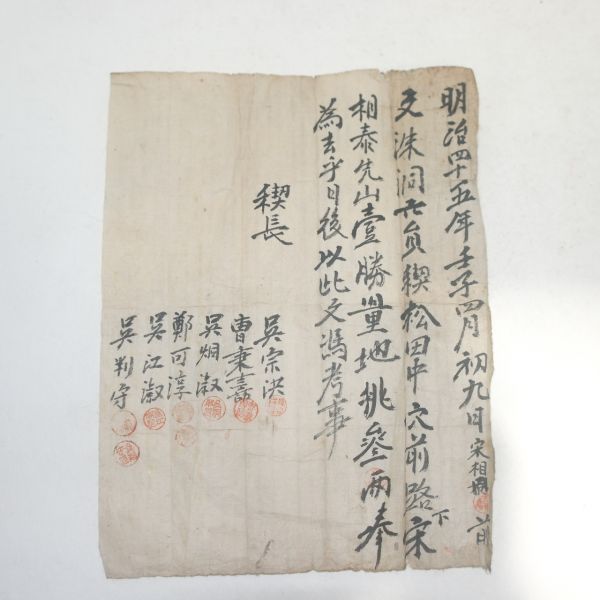 明治四十五年壬子四月初九日宋相 前
文洙洞 員稧松田中穴前路下宋
相泰先山壹勝量地 參兩奉
為去乎日後以此文憑考事
稧長
吳宗洪
曹秉喜
吳炯淑
鄭可淳
吳江淑
吳判守